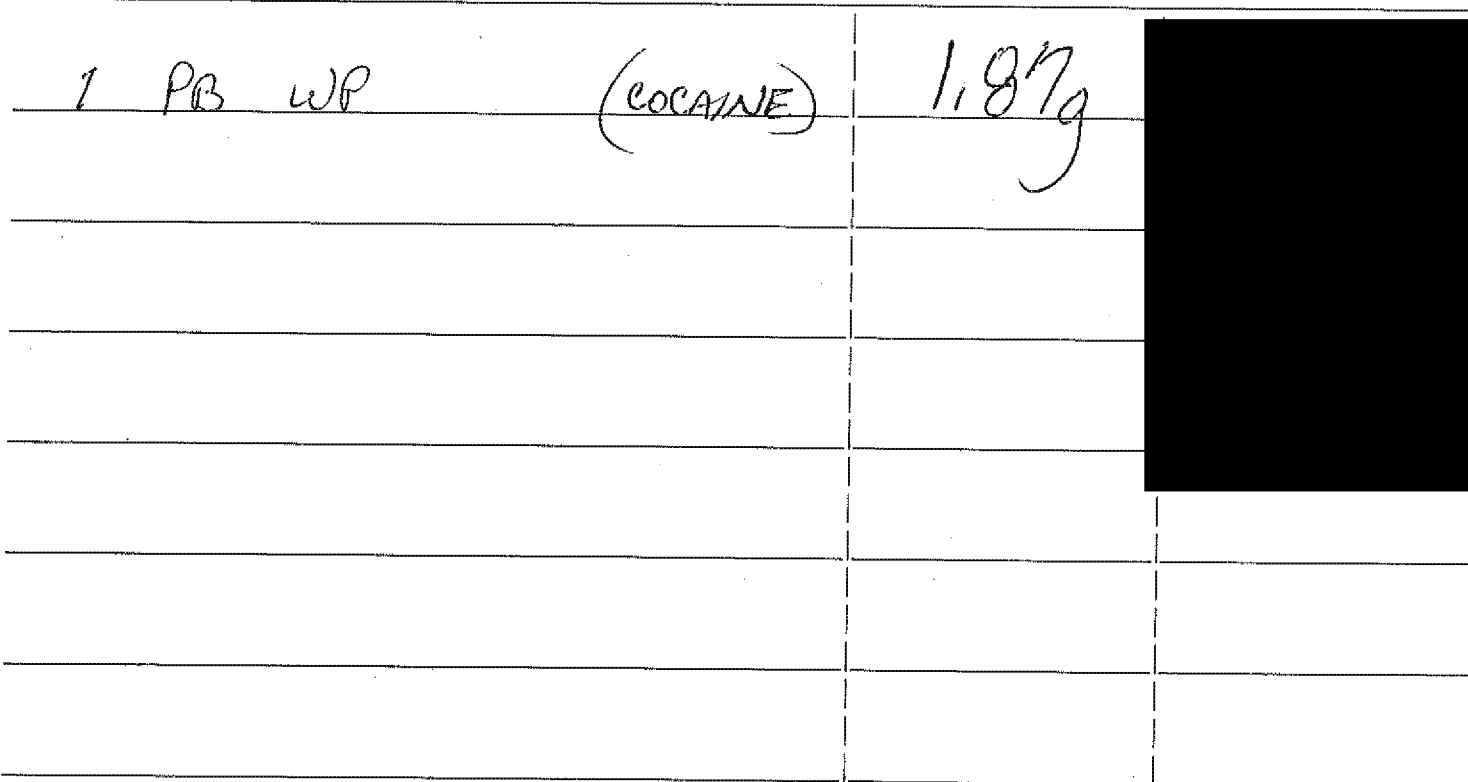 1 PB WP (COCAINE) 1.87g